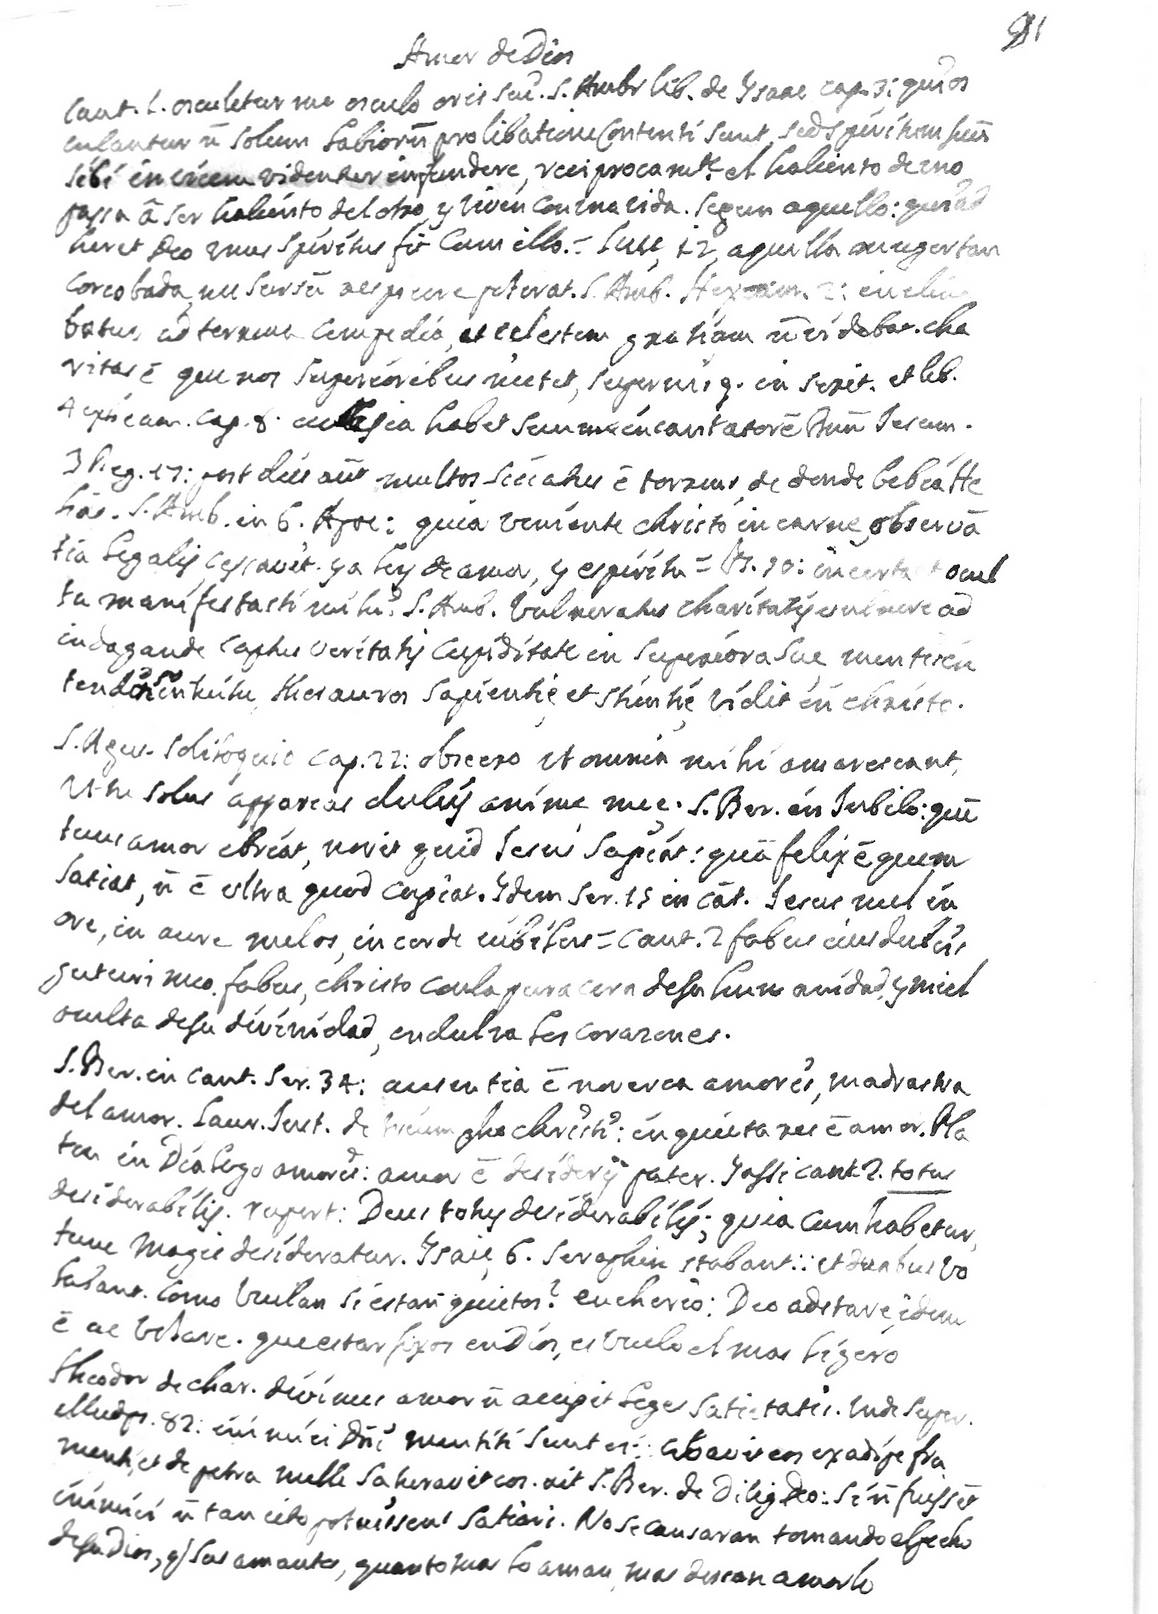 91
Amor de Dios
Cant. 1. osculetur me osculo oris sui. S. Ambr lib. de Ysaac cap. 3: qui os
culantur n̄ solum labiorū prolibatione contenti sunt, sed spiritum suū
sibi invicem videntur infundere, reciprocamte. el haliento de uno
passa â ser haliento del otro, y viven con una vida. segun aquello: qui ad
heret Deo unus spiritus fit cum illo. = Luce 12 aquella muger tan
corcobada, nec sursū respicere poterat. S. Amb. Hexam. 2: incline
batur ad terrena compedia, et celestem gratiam n̄ videbat. cha
ritas ē que nos superioribus nectet, supernisq. in serit. et lib.
4 exam. cap. 8. ecclesia habet suum incantatorē Dnū Jesum.
3 Reg. 17: post dies aūt multos siccatus ē torrens, de donde bebia He
lias. S. Amb. in 6. Apoc: quia veniente christo in carne, observā
tia legalis cessavit. ya ley de amor, y espiritu = Ps. 50: incerta et ocul
ta manifestasti mihi. S. Amb. Vulneratus charitatis vulnere ad
indagande captus veritatis cupiditate in superiora sue mentis in
tendens thesauros sapientiȩ et scientiȩ vidit in christo.
S. Agus. Soliloquio cap. 22: obsecro ut omnia mihi amarescant,
Ut tu solus appareas dulcis anime meȩ. S. Ber. in Iubilo: quē
tuus amor ebriat, novit quid Jesus sapiat: quā felix ē quem
satiat, n̄ ē ultra quod cupiat. Ydem Ser. 15 in cāt. Jesus mel in
ore, in aure melos, in corde iubilus = Cant. 2 fabus eius dulcis
guturi meo. fabus, christo con la pura cera de su humanidad, y miel
oculta de su divinidad, endulza los corazones.
S. Ber. in cant. Ser. 34: ausentia ē noverca amoris, madrastra
del amor. Laur. Just. de triumpho christi: inquieta res ē amor. Pla
ton in Dialogo amoris: amor ē desiderij pater. Yassi cant 2. totus
desiderabilis. rupert: Deus totus desiderabilis; quia cum habetur,
tunc magis desideratur. Ysaiȩ 6. Seraphin stabant:: et duabus vo
labant. Como buelan si estan quietos? eucherio: Deo adstare, idem
ē ac volare. que estar fixos en Dios, es buelo el mas ligero
Theodor de char. divinus amor n̄ accipit leges satietatis. Unde super.
illud ps. 82: inimici Dñi mentiti sunt ei:: cibavit eos ex adipe fru
menti, et de petra melle saturavit eos. ait S. Ber. de Dilig Deo: si n̄ fuissēt
inimici n̄ tan cito potuissent satiari. No se cansaran tomando el pecho
de su Dios, q sus amantes, quanto mas lo aman, mas desean amarlo